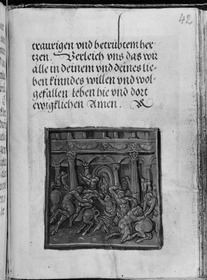 42
traurigen vnd betrubtem her-
tzen. Verleich vns das wir
alle in deinem vnd deines lie-
ben kindes willen vnd wol-
gefallen leben hie vnd dort
ewigklichen Amen.